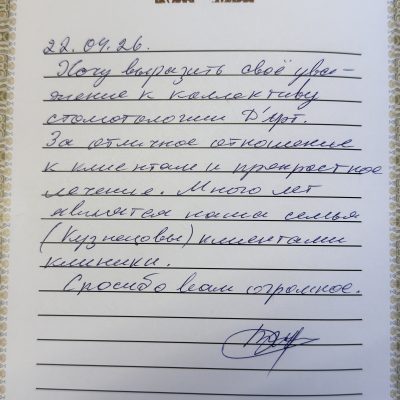 22.04.26.
Хочу выразить своё ува-
жение к коллективу
стоматологии Д'Арт.
За отличное отношение
к клиентам и прекрастное
лечение. Много лет
является наша семья
(Кузнецовы) клиентами
клиники.
Спасибо вам огромное.